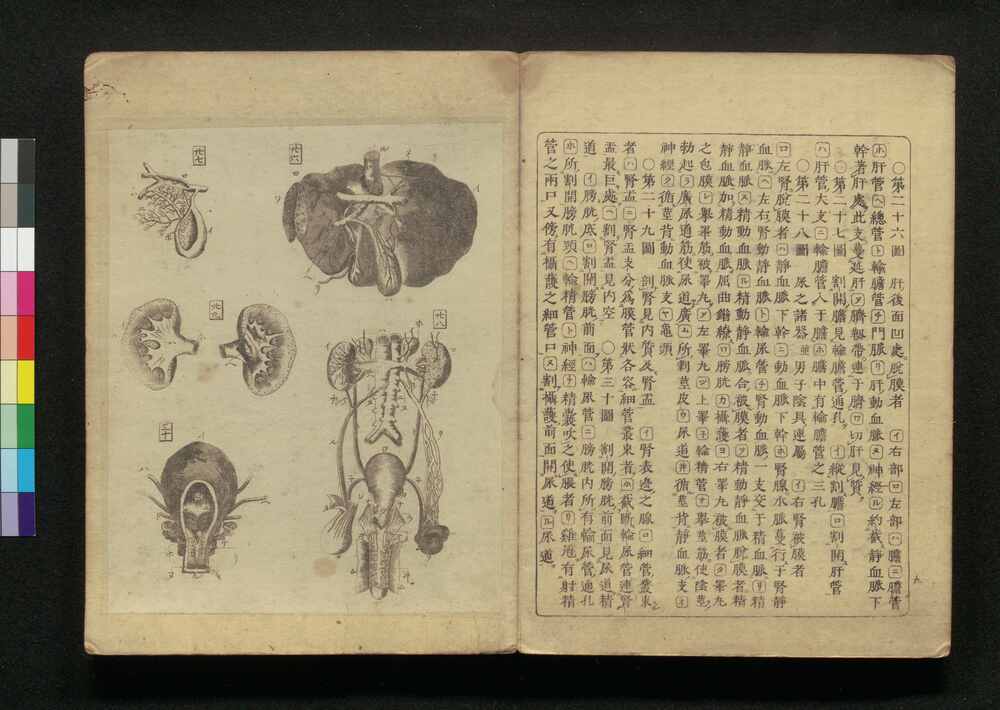 〇第二十六圖 肝後面凹處脫膜者 イ右部ロ左部ハ膽ニ膽管
ホ肝管ヘ總管ト輸膽管チ門脈リ肝動血脈ヌ神經ル約截靜血脈下
幹著肝處此支蔓延肝ヲ臍靱帶連于臍ロ切肝見質
〇第二十七圖 割開膽見輸膽管通孔 イ縱割膽ロ割開肝管
ハ肝管大支ニ輸膽管入于膽ホ膽中有輸膽管之三孔
〇第二十八圖 尿之諸器並男子陰具連屬 イ右腎被膜者
ロ左腎脫膜者ハ靜血脈下幹ニ動血脈下幹ホ腎腺水脈蔓行于腎靜
血脈ヘ左右腎動靜血脈ト輸尿管チ腎動血脈一支交于精血脈リ精
靜血脈ヌ精動血脈ル精動靜血脈合被膜者ヲ精動靜血脈脫膜者精
靜血脈加精動血脈屈曲錯綜ワ膀胱カ攝護ヨ右睪丸被膜者タ睪丸
之色膜レ擧睪筋被睪丸ソ左睪丸ツ上睪ネ輸精管ナ擧莖筋使陰莖
勃起ラ廣尿道筋使尿道廣ム所割莖皮ウ尿道井循莖背靜血脈支イ
神經ク循莖背動血脈支ヤ龜頭
〇第二十九圖 剖腎見内質及腎盂 イ腎表邊之腺ロ細管叢束
者ハ腎盂ニ腎盂支分爲膜管狀各容細管叢束者ホ截斷輸尿管連腎
盂最巨處ヘ割腎盂見内空 〇第三十圖 割開膀胱前面見尿道精
道 イ膀胱底ロ割開膀胱前面ハ輸尿管ニ膀胱内所有輸尿管通孔
ホ所割開膀胱頸ヘ輸精管ト神經チ精囊吹之使脹者リ雞冠有射精
管之兩口又傍有攝護之細管口ヌ割攝護前面開尿道ル尿道
廿六
廿七
廿八
廿九
三十